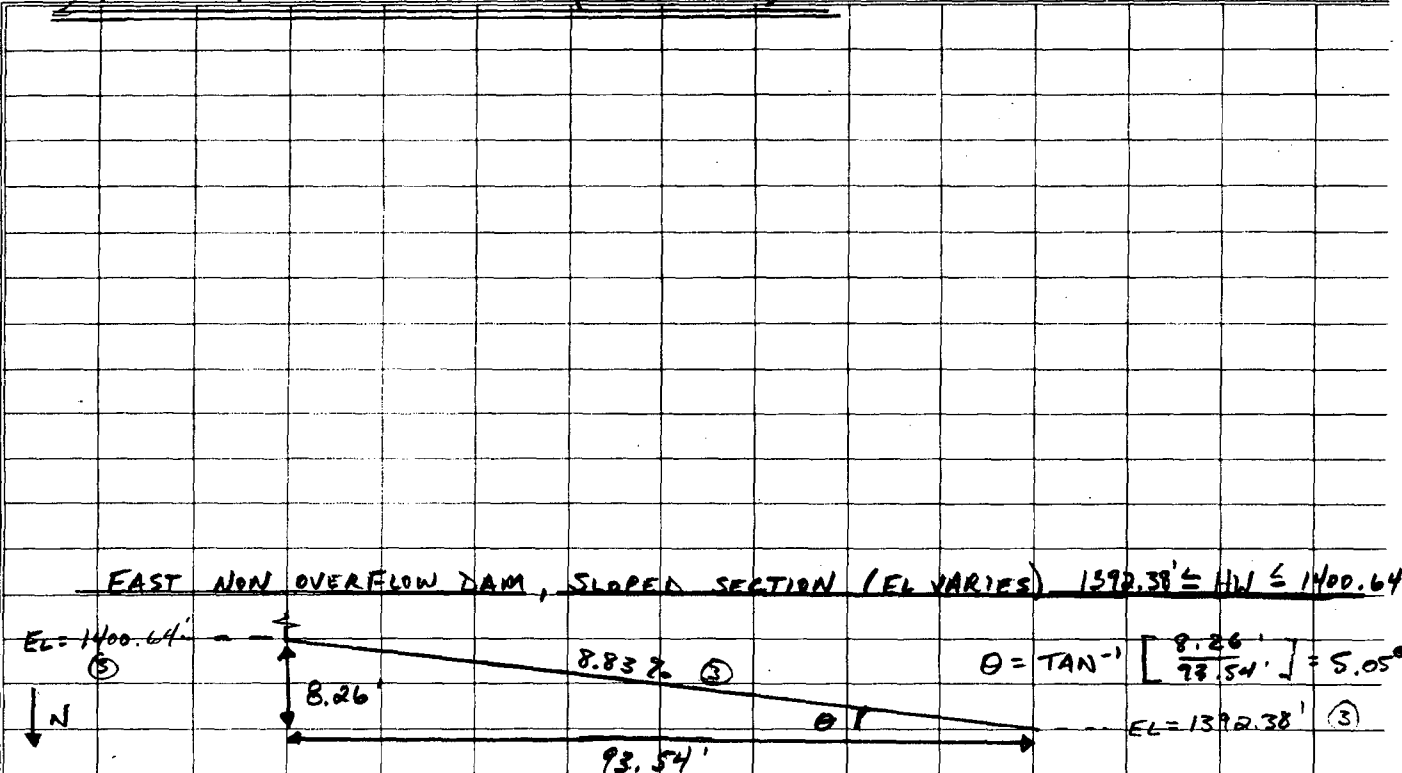 EAST NON OVERFLOW DAM, SLOPED SECTION (EL VARIES) 1392.38' ≤ HW ≤ 1400.64
EL= 1400.64'
8.83 % ③
θ = TAN⁻¹ [ 8.26' / 93.54' ] = 5.05°
8.26'
N
θ
EL=1392.38' ③
93.54'